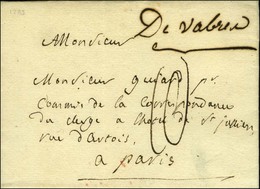 1783
De Vabres
Monsieur
Monsieur guerard pr.
Commis de la Correspondance
du clergé a l'hotel de St julien
rue d'artois,
a paris